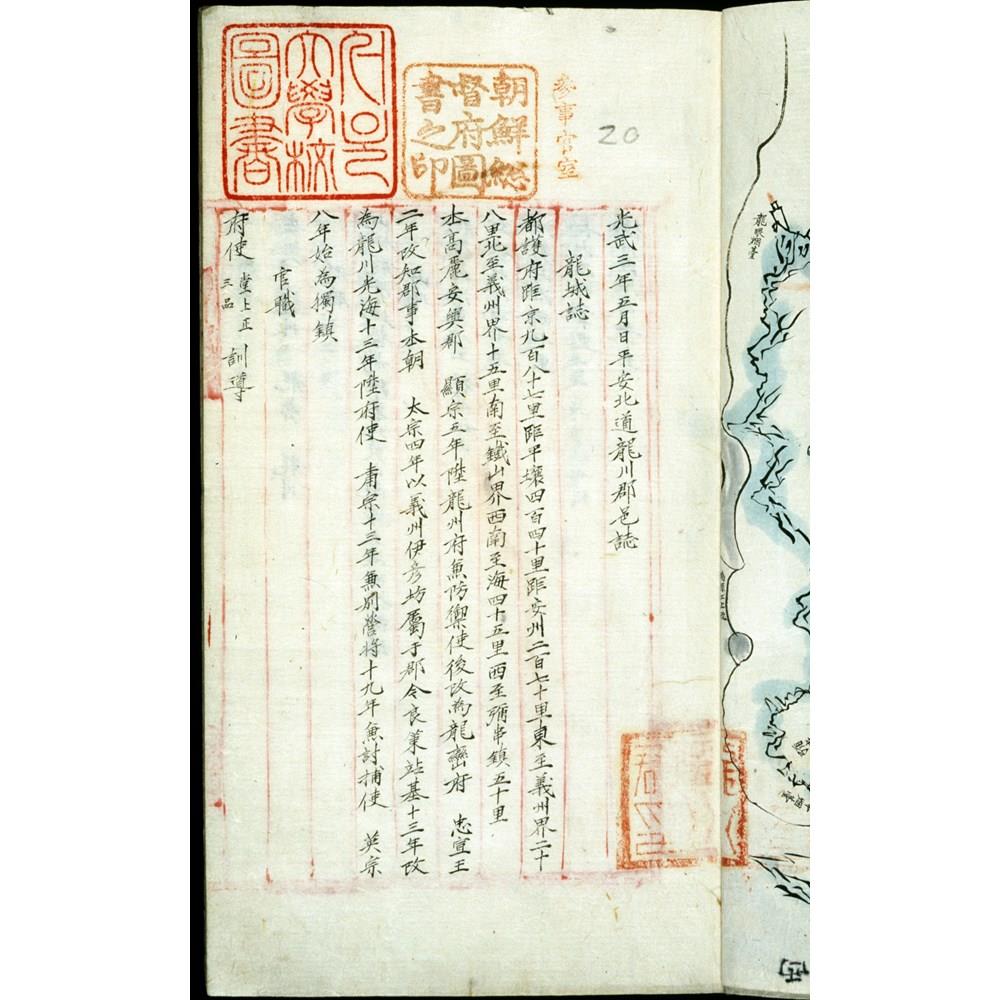 參事官室
20
朝鮮總
督府圖
書之印
서울
大學校
圖書
光武三年五月日平安北道龍川郡邑誌
龍城誌
都護府距京九百八十七里距平壤四百四十里距安州二百七十里東至義州界二十
八里北至義州界十五里南至鐵山界西南至海四十五里西至彌串鎮五十里
本高麗安興郡 顯宗五年陞龍州府兼防禦使後改為龍灣府 忠宣王
二年改知郡事本朝 太宗四年以義州伊彥坊屬于郡令良菓站基十三年改
為龍川光海十三年陞府使 肅宗十三年兼別營將十九年兼討捕使 英宗
八年始為獨鎮
官職
府使 堂上正三品 訓導
龍眼烟臺
西